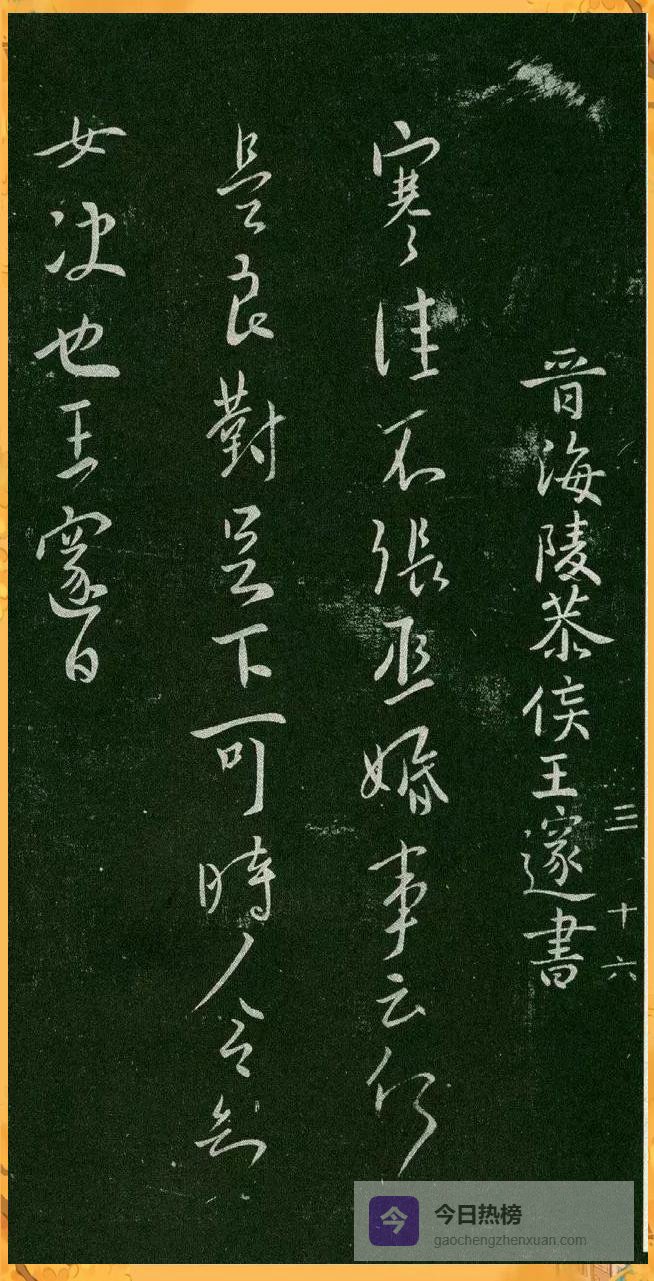 三 十六
晉海陵恭侯王邃書
寒佳不張丞婚事云何
是良對足下可時令知
女決也王邃白
今
今日热榜
gaochengzhenxuan.com